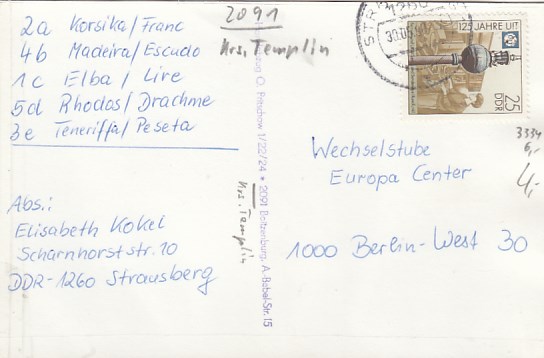 2a Korsika/Franc
4b Madeira/Escudo
1c Elba / Lire
5d Rhodos/Drachme
3e Teneriffa/Peseta
Abs.:
Elisabeth Kokel
Scharnhorststr. 10
DDR-1260 Strausberg
2091
Krs. Templin
O. Pritschow 1/22/24 * 2091 Boitzenburg, A.-Bebel-Str. 15
Krs. Templin
125 JAHRE UIT
25
DDR
3334
6,-
4,-
Wechselstube
Europa Center
1000 Berlin-West 30